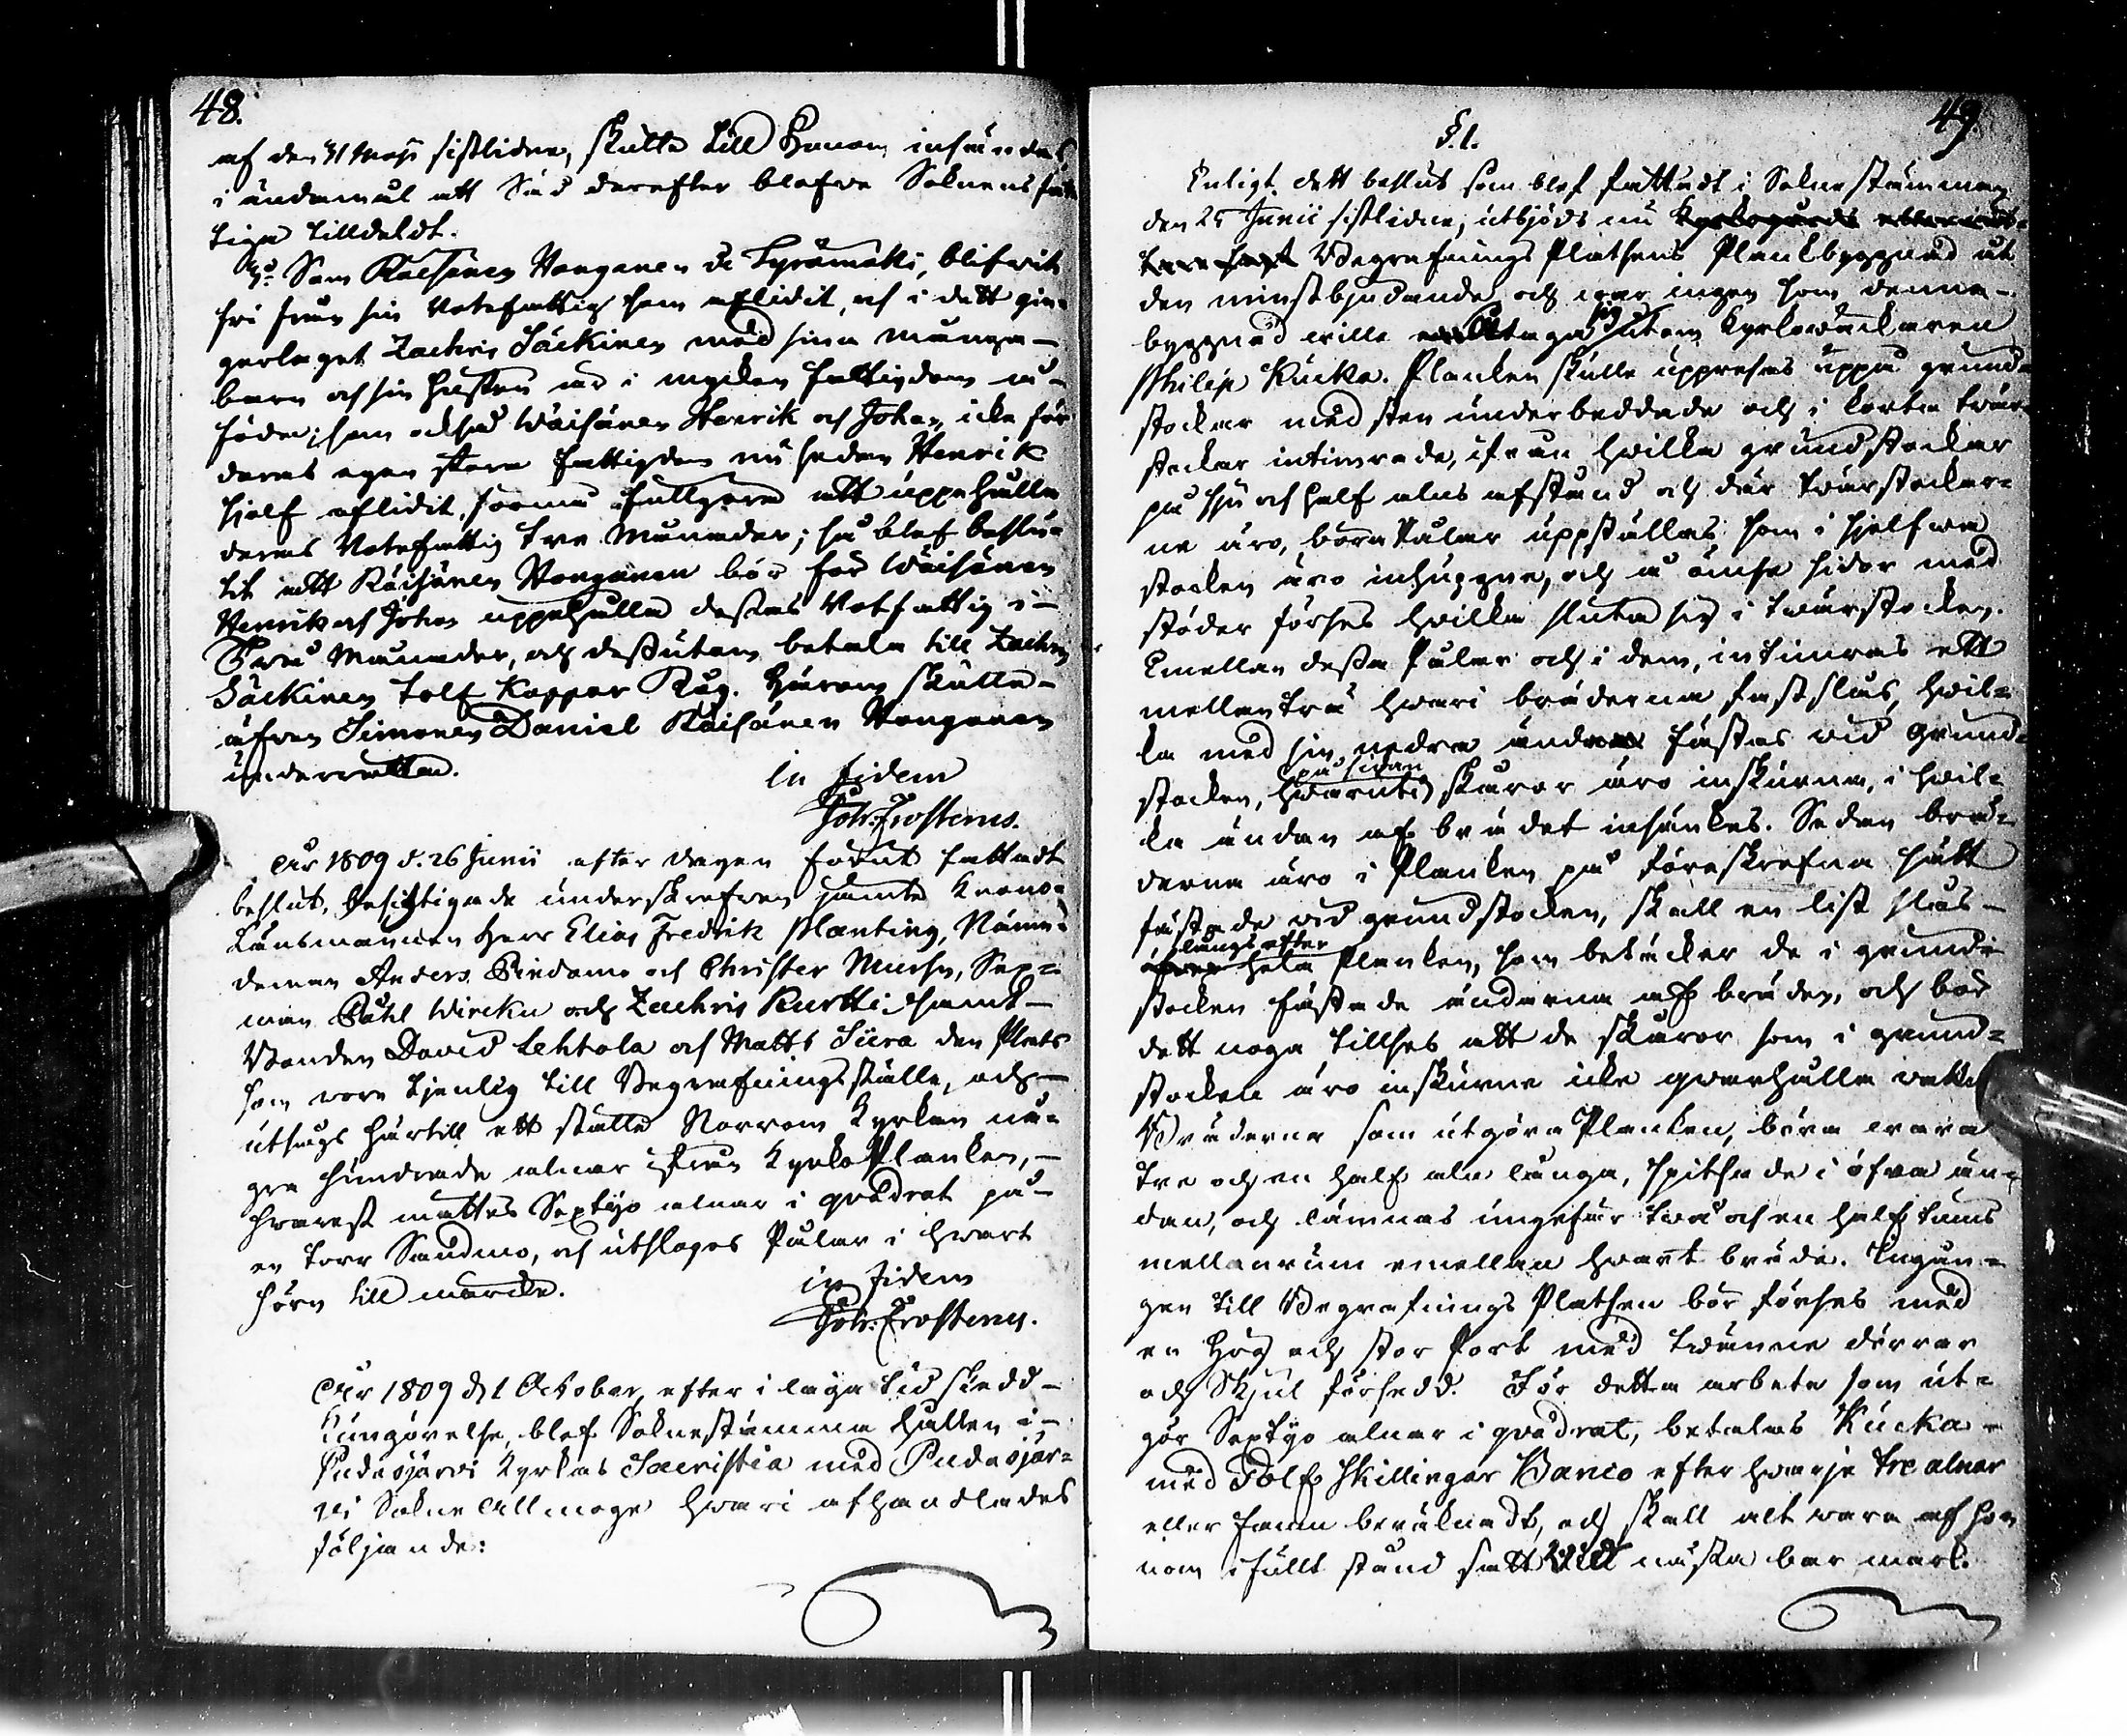 48.
af den 31 Maji sistlidne, skulle till Honom insändas
i ändamål att Säd derefter blefve Soknens fat-
tiga tilldeldt.
3:o Som Räisänen Vonganen de Syrämäki, blifvit
fri från sin Rotefattig som aflidit, och i dett gin-
gerlaget Zachris Säckinen med sina många
barn och sin hustru är i mycken fattigdom
som också Wäisänen Henrik och Johan icke för
deras egen stora fattigdom nu sedan Henrik
sjelf aflidit, förmå fullgöra att uppehålla
deras Rotefattig tre Månader; så blef beslu-
tit att Räisänen Vonganen bör för Wäisänen
Henrik och Johan uppehålla dessas Rotfattig i
Tre Månader, och dessutom betala till Zachris
Säckinen tolf Kappar Råg. Härom skulle
äfven Simonen Daniel Räisänen Vonganen
underrättas.
in fidem
Joh. Frosterus.
År 1809 d. 26 Junii efter dagen förut fattadt
beslut, besichtigade underskrefven jämte Krono-
Länsmannen Herr Elias Fredrik Planting, Nämn-
deman Anders Pindamo och Christer Mursu, Sex-
män Påhl Wircku och Zachris Kurtti samt
Bonden David Lehtola och Matts Siira den Plats
som vore tjenlig till Begrafningsställe, och
utsågs härtill ett ställe Norrom Kyrkan nå-
gra hundrade alnar ifrån KyrkoPlanken,
hvarest mättes Sextijo alnar i qvadrat på
en torr Sandmo, och utslogos Pålar i hvart
hörn till märke.
in fidem
Joh. Frosterus.
År 1809 d. 1 October, efter i laga tid skedd
Kungörelse, blef Soknestämma hållen i
Pudasjärvi Kyrkas Sacristia med Pudasjär-
vi Sokne Allmoge hvari afhandlades
följande:
49
§.1.
Enligt dett beslut som blef fattadt i Soknestämman
den 25 Junii sistlidne, utbjöds nu Kyrkogårds
Begrafnings Platsens Plankbyggnad åt
den minstbjudande, och var ingen som denna
byggnad ville åttaga sig utom Kyrkoväktaren
Philip Kucka. Planken skulle uppresas uppå grund-
stockar med sten underbeddade och i korta tvär-
stockar intimrade, ifrån hvilka grundstockar
på sju och half alns afstånd och där tvärstockar-
ne äro, böra Pålar uppställas som i sjelfva
stocken äro inhuggne, och å ömse sidor med
stöder förses hvilka sluta sig i tvärstocken.
Emellan dessa Pålar och i dem, intimras ett
mellanträ hvari bräderna fastslås, hvil-
ka med sin nedre ända fästas vid Grund-
stocken, hvaruti på sidan skåror äro inskurna, i hvil-
ka ändan af brädet insänkes. Sedan brä-
derna äro i Planken på föreskrefna sätt
fästade vid grundstocken, skall en list slås
öfver långs efter hela Planken, som betäcker de i grund-
stocken fästade ändarna af bräden, och bör
dett noga tillses att de skåror som i grund-
stocken äro inskurne icke qvarhålla vatten
Bräderna som utgöra Planken, böra vara
tre och en half aln långa, spitsade i öfra än-
dan, och lämnas ungefär två och en half tums
mellanrum emellan hvart bräde. Ingån-
gen till Begrafnings Platsen bör förses med
en hög och stor Port med tvänne dörrar
och Skjul försedd. För detta arbete som ut-
gör Sextijo alnar i qvadrat, betalas Kucka
med Tolf Skillingar Banco efter hvarje tre alnar
eller famn beräknadt, och skall alt vara af ho-
nom i fullt stånd satt till nästa bar mark.